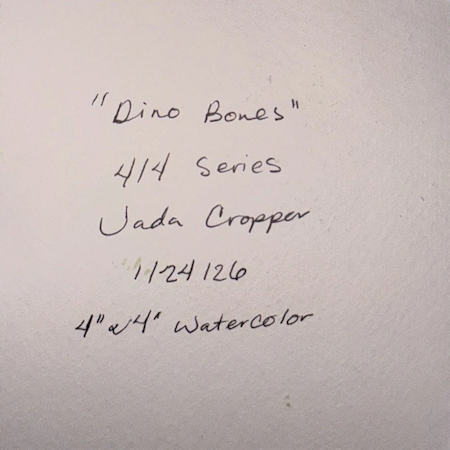 "Dino Bones"
4/4 Series
Jada Cropper
1/24/26
4"x4" Watercolor